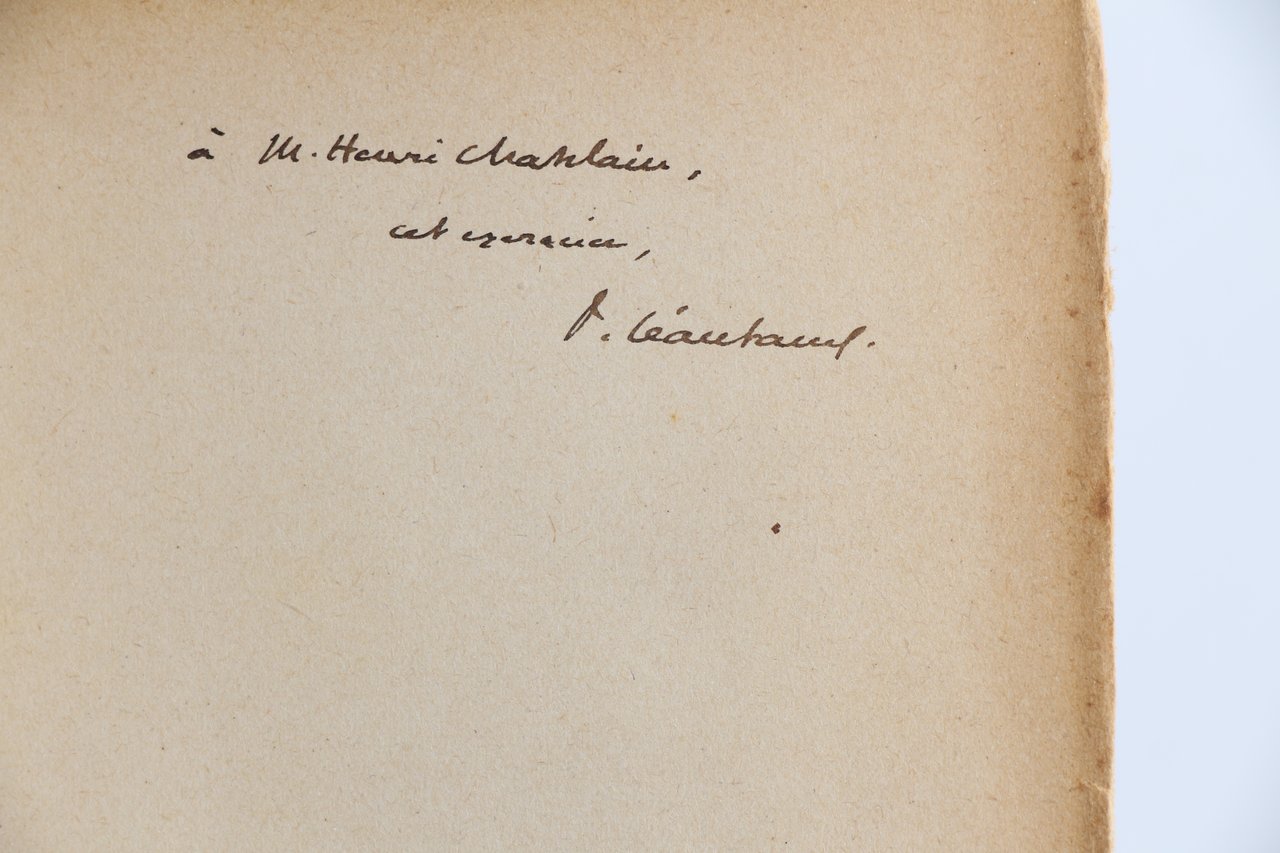 à M. Henri Chatelain,
cet
P. Léautaud.